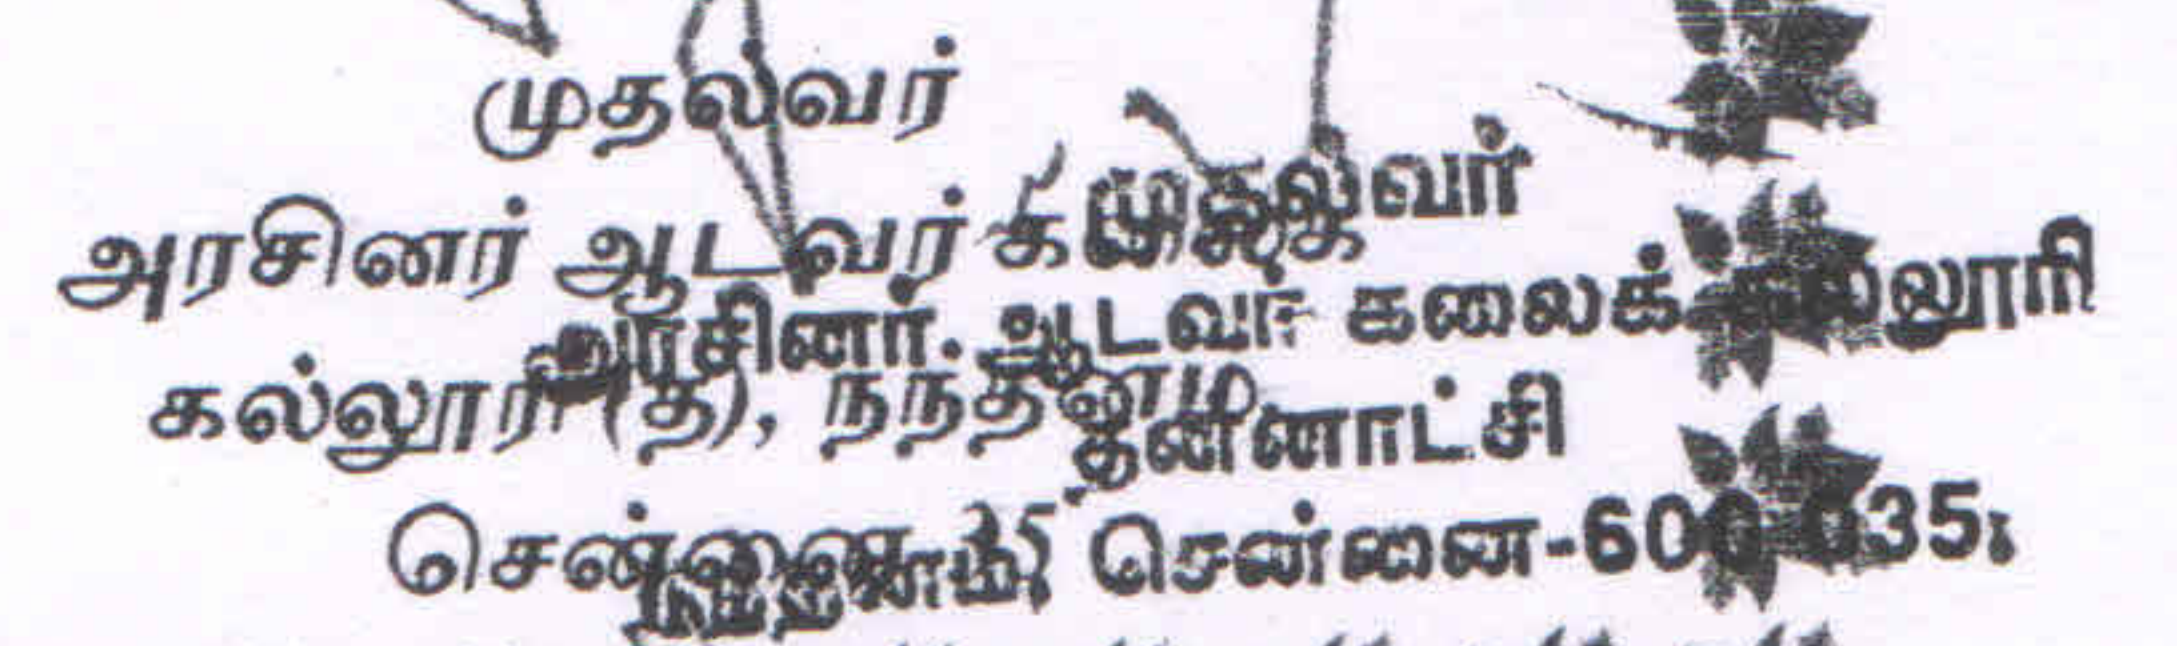 முதல்வர்
அரசினர் ஆடவர் கலைக்
கல்லூரி (த), நந்தனம்
சென்னை-35
முதல்வர்
அரசினர். ஆடவர் கலைக் கல்லூரி
தன்னாட்சி
நந்தனம், சென்னை-600 035.